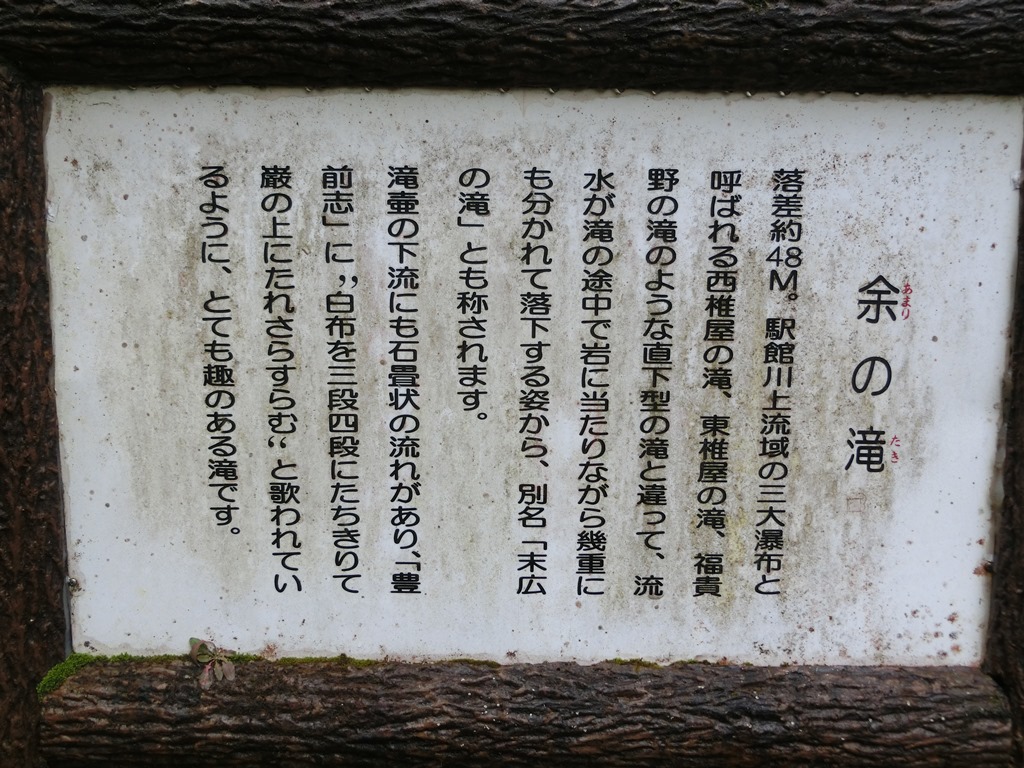 余の滝
あまり たき
落差約48M。駅館川上流域の三大瀑布と
呼ばれる西椎屋の滝、東椎屋の滝、福貴
野の滝のような直下型の滝と違って、流
水が滝の途中で岩に当たりながら幾重に
も分かれて落下する姿から、別名「末広
の滝」とも称されます。
滝壷の下流にも石畳状の流れがあり、「豊
前志」に”白布を三段四段にたちきりて
巌の上にたれさらすらむ“と歌われてい
るように、とても趣のある滝です。